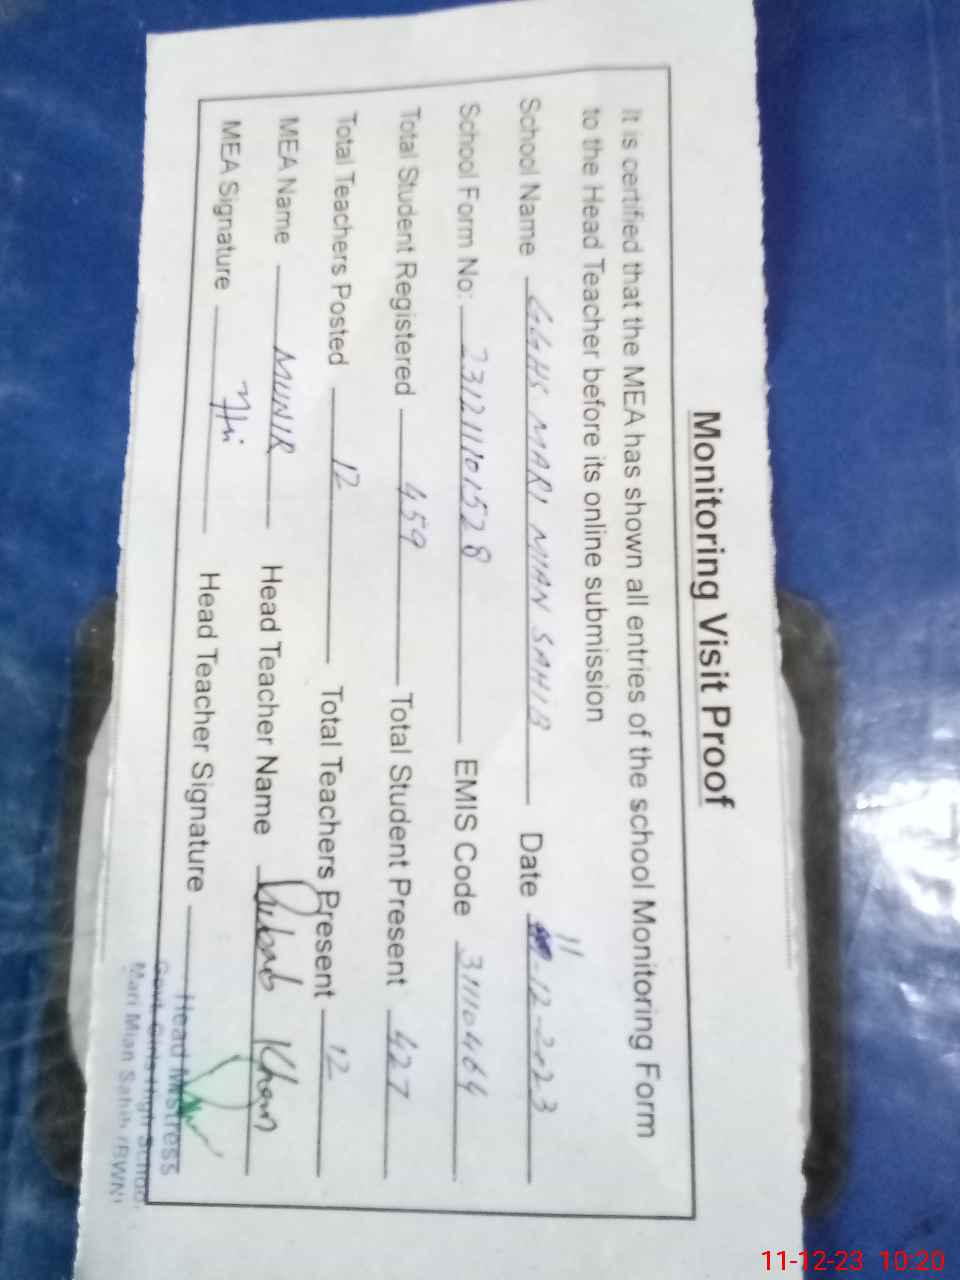 Monitoring Visit Proof
It is certified that the MEA has shown all entries of the school Monitoring Form
to the Head Teacher before its online submission
School Name GGHS MARI MIAN SAHIB Date 11-12-2023
School Form No: 231211101528 EMIS Code 31110464
Total Student Registered 459 Total Student Present 427
Total Teachers Posted 12 Total Teachers Present 12
MEA Name MUNIR Head Teacher Name Khan
MEA Signature Head Teacher Signature
Head Mistress
Govt. Girls High School
Mari Mian Sahib (BWN)
11-12-23 10:20